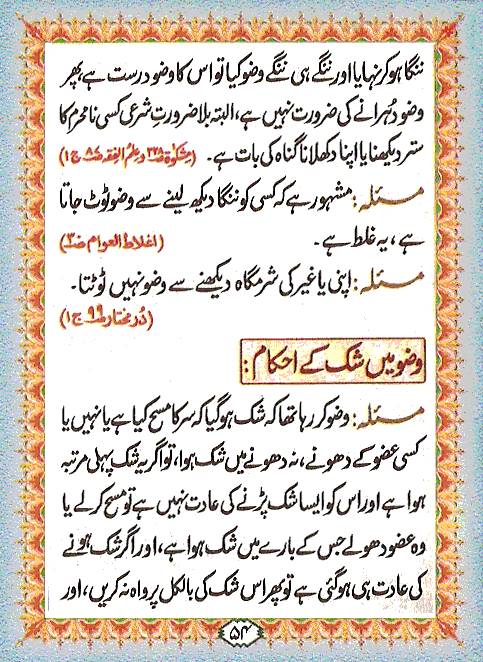 ننگا ہوکر نہایا اور ننگے ہی ننگے وضو کیا تو اس کا وضو درست ہے، پھر
وضو دُہرانے کی ضرورت نہیں ہے، البتہ بلا ضرورتِ شرعی کسی نامحرم کا
ستر دیکھنا یا اپنا دکھلانا گناہ کی بات ہے۔ (مشکوٰۃ وعلم الفقہ ج۱)
مسئلہ: مشہور ہے کہ کسی کو ننگا دیکھ لینے سے وضو ٹوٹ جاتا
ہے، یہ غلط ہے۔ (اغلاط العوام ص۳)
مسئلہ: اپنی یا غیر کی شرمگاہ دیکھنے سے وضو نہیں ٹوٹتا۔
(دُرمختار ص۹۹ ج۱)
وضو میں شک کے احکام:
مسئلہ: وضو کر رہا تھا کہ شک ہوگیا کہ سر کا مسح کیا ہے یا نہیں یا
کسی عضو کے دھونے، نہ دھونے میں شک ہوا، تو اگر یہ شک پہلی مرتبہ
ہوا ہے اور اس کو ایسا شک پڑنے کی عادت نہیں ہے تو مسح کرلے یا
وہ عضو دھولے جس کے بارے میں شک ہوا ہے، اور اگر شک ہونے
کی عادت ہی ہوگئی ہے تو پھر اس شک کی بالکل پرواہ نہ کریں، اور
۵۴